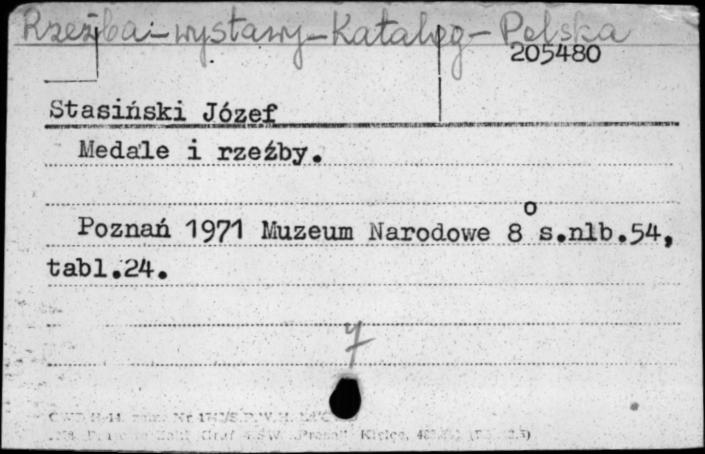 Rzeźba-wystawy-Katalog-Polska
205480
Stasiński Józef
Medale i rzeźby.
Poznań 1971 Muzeum Narodowe 8° s.nlb.54,
tabl.24.